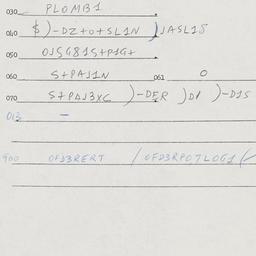 030 PLOMB1
040 $)-DZ+0+SL1N )JASL1S
050 OJSG81S+P1G+
060 S+PAJ1N 061 O
070 S+PAJ3XC )-DER )D1 )-DJS
013 -
900 OFD3RERT / OFD3RPO7LOG1 (